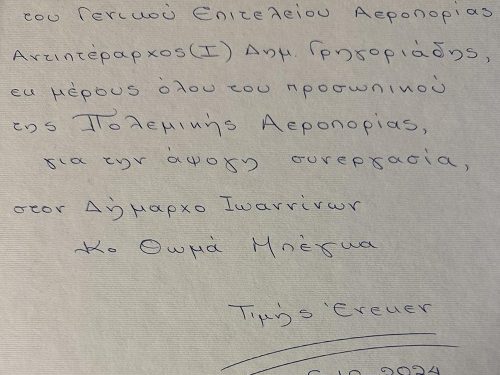 του Γενικού Επιτελείου Αεροπορίας
Αντιπτέραρχος(Ι) Δημ. Γρηγοριάδης,
εκ μέρους όλου του προσωπικού
της Πολεμικής Αεροπορίας,
για την άψογη συνεργασία,
στον Δήμαρχο Ιωαννίνων
Κο Θωμά Μπέγκα
Τιμής Ένεκεν
2024